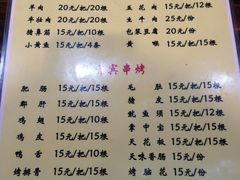 羊肉 20元/把/20根
五花肉 15元/把/12根
羊肚肉 20元/把/20根
生牛肉 25元/份
猪鼻筋 15元/把/10根
包浆豆腐 20元/份
小黄鱼 15元/把/4条
黄喉 15元/把/15根
宾串烤
肥肠 15元/把/15根
毛肚 15元/把/15根
郡肝 15元/把/15根
猪皮 15元/把/15根
鸡翅 15元/把/10根
鱿鱼须 15元/把/12根
鸡皮 15元/把/15根
掌中宝 15元/把/15根
鸭舌 15元/把/10根
天花板 15元/把/15根
烤排骨 15元/把/15根
天味香肠 15元/份
烤脑花 15元/份